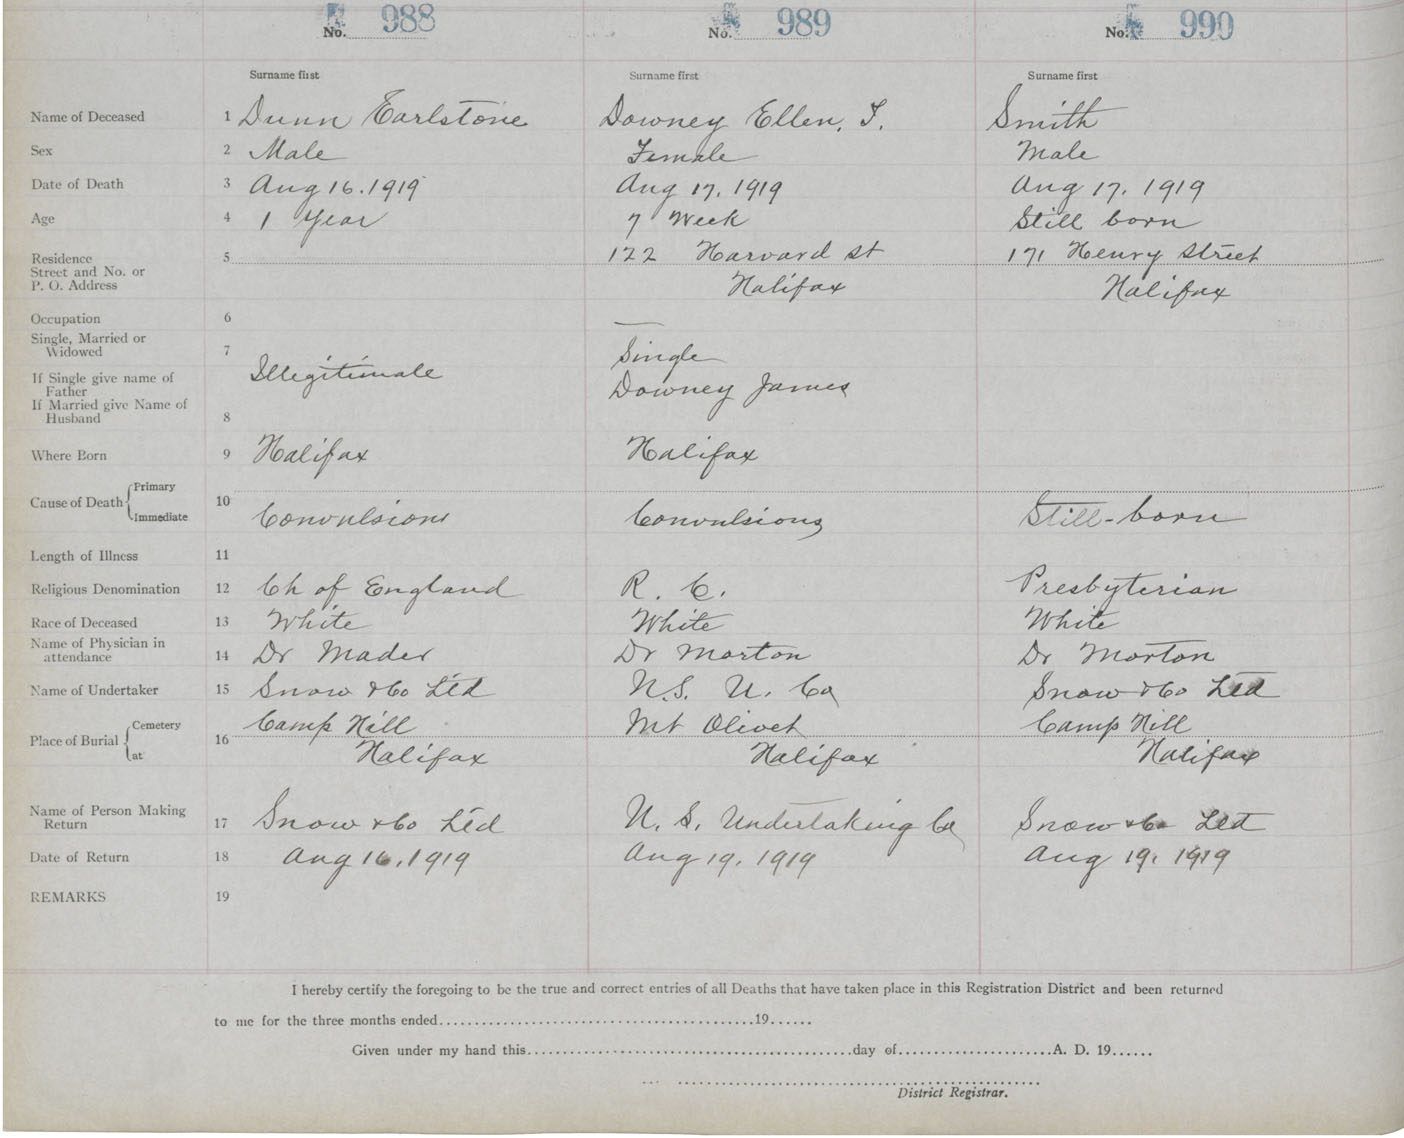 No. 988 No. 989 No. 990
Surname first Surname first Surname first
Name of Deceased 1 Dunn Earlstone Downey Ellen, T. Smith
Sex 2 Male Female Male
Date of Death 3 Aug 16. 1919 Aug 17, 1919 Aug 17, 1919
Age 4 1 Year 7 Week Still born
Residence 5 122 Harvard st 171 Henry Street
Street and No. or
P. O. Address Halifax Halifax
Occupation 6 —
Single, Married or
Widowed 7 Single
If Single give name of Illegitimate Downey James
Father
If Married give Name of
Husband 8
Where Born 9 Halifax Halifax
Cause of Death Primary 10
Immediate Convulsions Convulsions Still-born
Length of Illness 11
Religious Denomination 12 Ch of England R. C. Presbyterian
Race of Deceased 13 White White White
Name of Physician in
attendance 14 Dr Mader Dr Morton Dr Morton
Name of Undertaker 15 Snow & Co Ltd N.S. U. Co Snow & Co Ltd
Place of Burial Cemetery 16 Camp Hill Mt Olivet Camp Hill
at Halifax Halifax Halifax
Name of Person Making
Return 17 Snow & Co Ltd N. S. Undertaking Co Snow & Co Ltd
Date of Return 18 Aug 16, 1919 Aug 19, 1919 Aug 19, 1919
REMARKS 19
I hereby certify the foregoing to be the true and correct entries of all Deaths that have taken place in this Registration District and been returned
to me for the three months ended..........19......
Given under my hand this..........day of..........A. D. 19......
District Registrar.